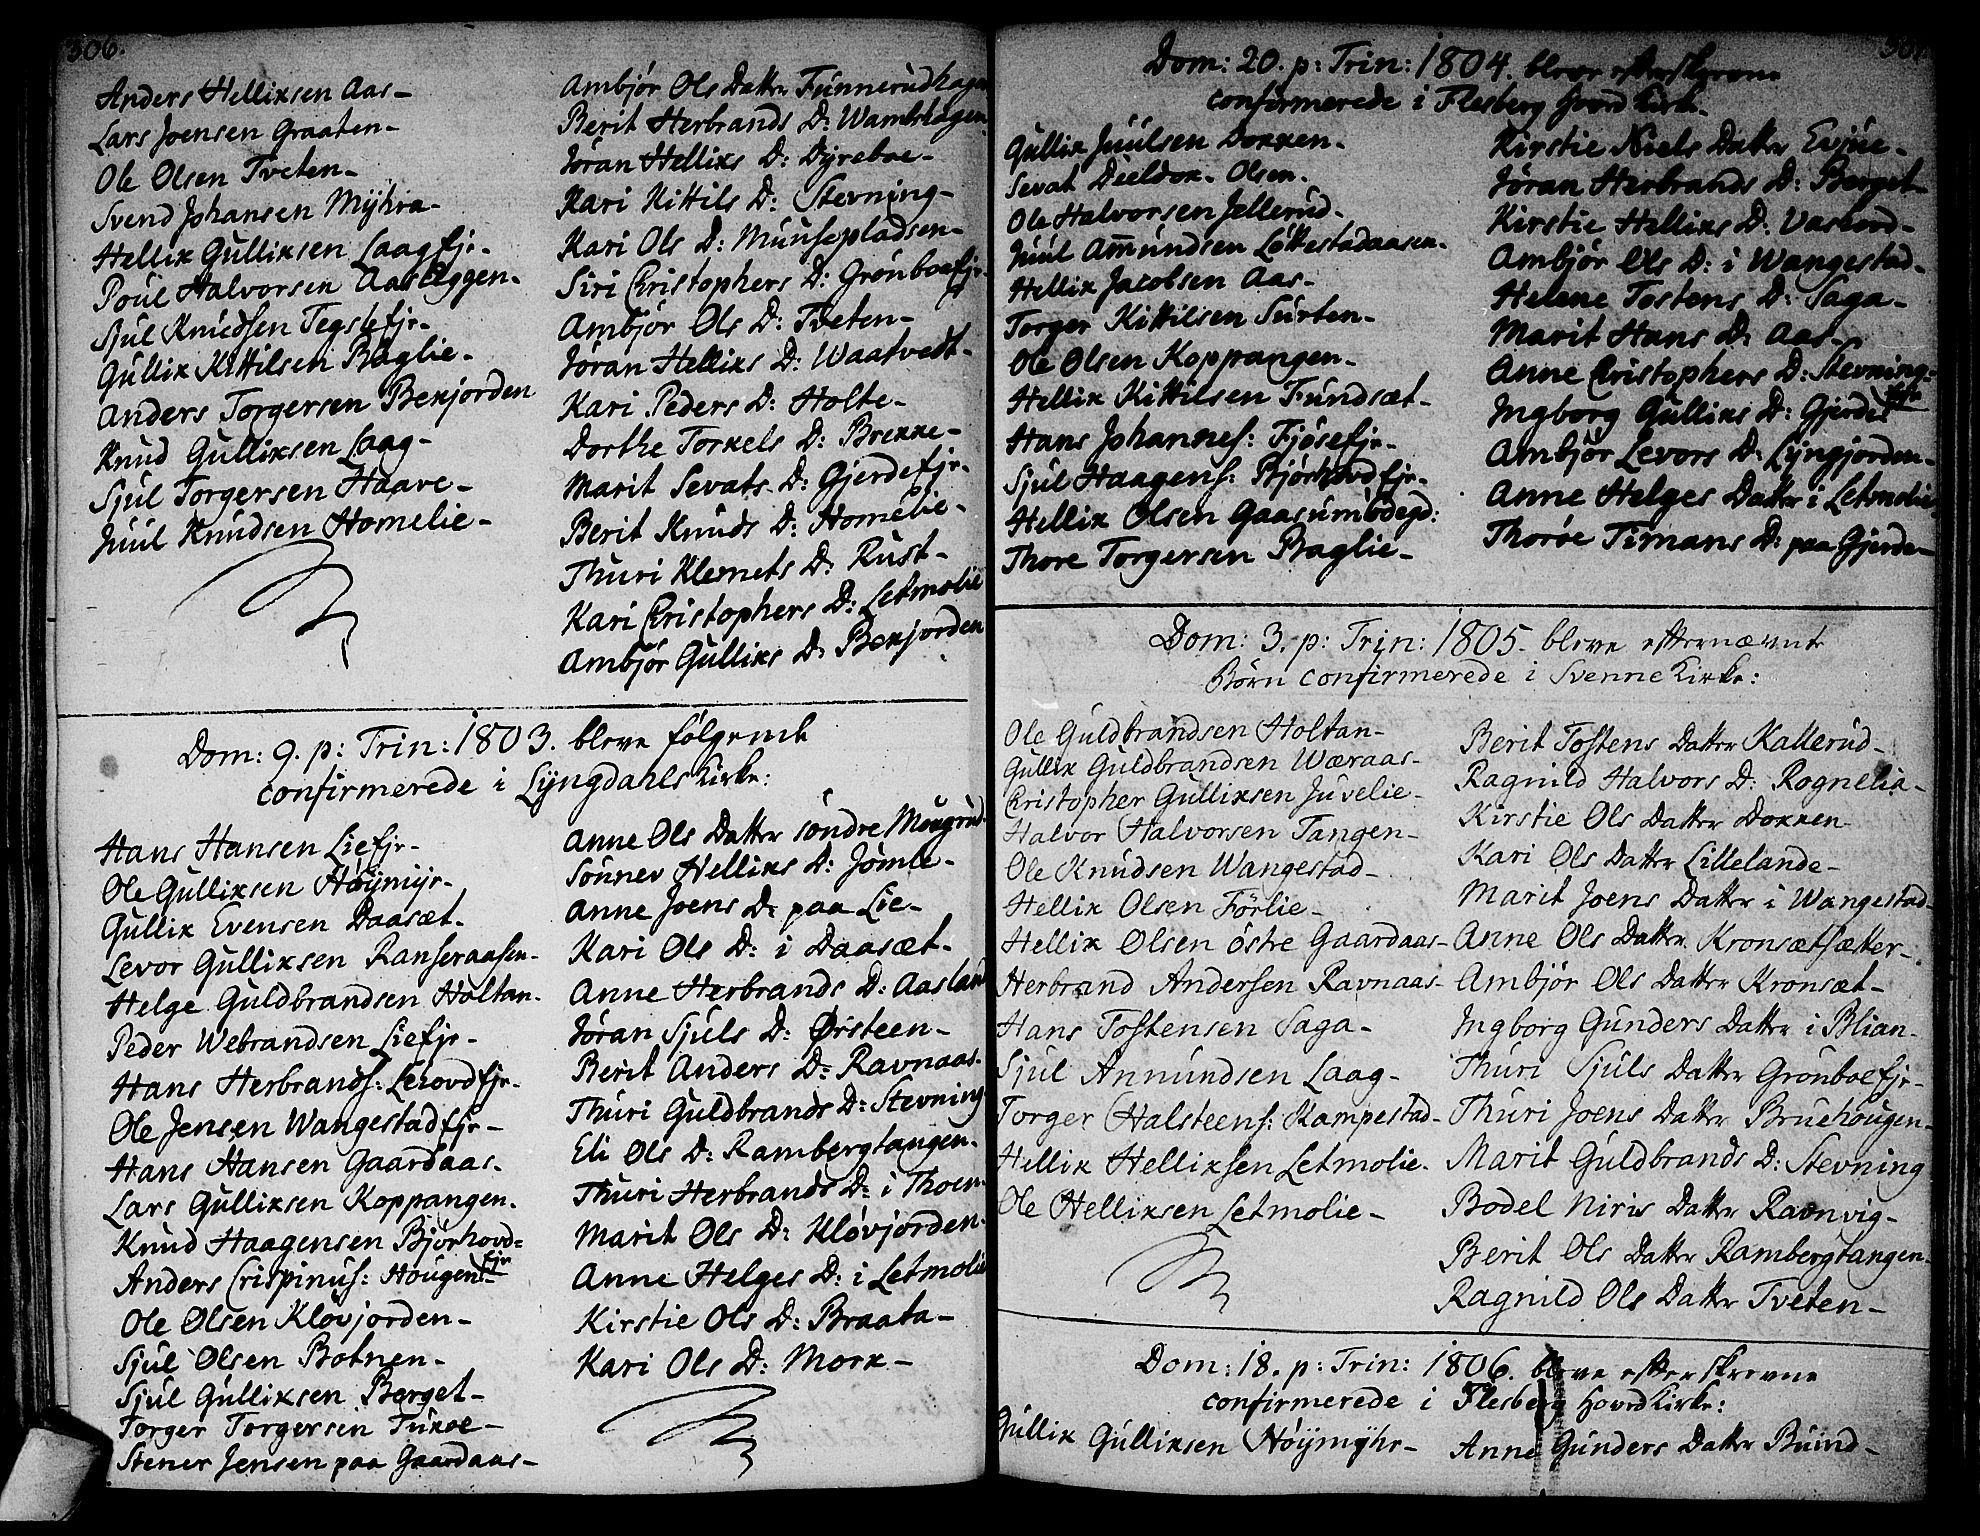 306.
Anders Hellixsen Aas-
Lars Joensen Graaten-
Ole Olsen Tveten-
Svend Johansen Mÿhra-
Hellix Gullixsen Laagejr-
Poul Halvorsen Aaslaggen-
Sjul Knudsen Tegslefjr-
Gullix Kittilsen Baglie-
Anders Torgersen Bekjorden
Knud Gullixsen Laag-
Sjul Torgersen Haave-
Juul Knudsen Homelie-
Ambjör Ols Datter Funnerudhagen
Berit Herbrands D: Wambshagen
Jöran Hellixs D: Dÿreboe-
Kari Kittils D: Stevning-
Kari Ols D: Muusepladsen-
Siri Christophers D: Grönboeejr-
Ambjör Ols D: Tveten-
Jöran Hellixs D: Waatvedt-
Kari Peders D: Holte-
Dorthe Torkels D: Brekke-
Marit Sevats D: Gjerdeejr-
Berit Knuds D: Homelie-
Thuri Klemets D: Rust-
Kari Christophers D: Letmolie
Ambjör Gullixs D: Bekjorden
Dom: 9. p: Trin: 1803. bleve følgende
confirmerede i Lÿngdahls Kirke:
Hans Hansen Lieejr-
Ole Gullixsen Höÿmÿr-
Gullix Evensen Daasæt-
Levor Gullixsen Ranseraasen-
Helge Guldbrandsen Holtan-
Peder Webrandsen Lieejr-
Hans Herbrands: Lerovdejr-
Ole Jensen Wangestadejr-
Hans Hansen Gaardaas-
Lars Gullixsen Koppangen-
Knud Haagensen Bjørhovd=
ejr
Anders Crispinus: Hougen-
Ole Olsen Klövjorden-
Sjul Olsen Botnen-
Sjul Gullixsen Berget-
Torger Torgersen Tukoe-
Stener Jensen paa Gaardaas-
Anne Ols Datter söndre Mougrud-
Sönnev Hellixs D: Jömle-
Anne Joens D: paa Lie-
Kari Ols D: i Daasæt-
Anne Herbrands D: Aasland
Jöran Sjuls D: Ørsteen-
Berit Anders D: Ravnaas-
Thuri Guldbrands D: Stevning
Eli Ols D: Rambergtangen-
Thuri Herbrands D: i Thoen-
Marit Ols D: Klövjorden-
Anne Helges D: i Letmolie
Kirstie Ols D: Braata-
Kari Ols D: Mork-
307.
Dom: 20. p: Trin: 1804. bleve efterskrevne
confirmerede i Flesberg Hovd Kirke-
Gullix Juulsen Dokken-
Sevat Dieldok- Olsen-
Ole Halvorsen Jellerud-
Juul Amundsen Løkkestadaasen-
Hellix Jacobsen Aas-
Torger Kittilsen Surten-
Ole Olsen Koppangen-
Hellix Kittilsen Fundsæt-
Hans Johannes: Fjøseejr-
Sjul Haagens: Bjørhovdejr-
Hellix Olsen Gaasumödegd:
Thore Torgersen Baglie-
Kirstie Niels Datter Evjue-
Jöran Herbrands D: Berget-
Kirstie Hellixs D: Vaskovd-
Ambjör Ols D: i Wangestad-
Helene Tostens D: Saga-
Marit Hans D: Aas-
Anne Christophers D: Stevning-
Ingborg Gullixs D: Gjerdes
Ambjör Levors D: Lÿngjorden-
Anne Helges Datter i Letmolie
Thoröe Timans D: paa Gjerde-
Dom: 3. p: Trin: 1805- bleve efternævnte
Børn confirmerede i Svenne Kirke:
Ole Guldbrandsen Holtan-
Gullix Guldbrandsen Wæraas-
Christopher Gullixsen Juvelie-
Halvor Halvorsen Tangen-
Ole Knudsen Wangestad-
Hellix Olsen Förlie-
Hellix Olsen östre Gaardaas-
Herbrand Andersen Ravnaas-
Hans Tostensen Saga-
Sjul Annundsen Laag-
Torger Halsteens: Kampestad-
Hellix Hellixsen Letmolie-
Ole Hellixsen Letmolie-
Berit Tostens Datter Kallerud-
Ragnild Halvors D: Rognelia-
Kirstie Ols Datter Dokken-
Kari Ols Datter Lillelande-
Marit Joens Datter i Wangestad-
Anne Ols Datter Kronsætsætter-
Ambjör Ols Datter Kronsæt-
Ingborg Gunders Datter i Blian-
Thuri Sjuls Datter Grönboeejr-
Thuri Joens Datter Bruehougen-
Marit Guldbrands D: Stevning
Bodel Niris Datter Ravnvig-
Berit Ols Datter Rambergtangen-
Ragnild Ols Datter Tveten-
Dom: 18. p: Trin: 1806. bleve efterskrevne
confirmerede i Flesberg Hovedkirke:
Gullix Gullixsen Höÿmÿhr-
Anne Gunders Datter Buind-